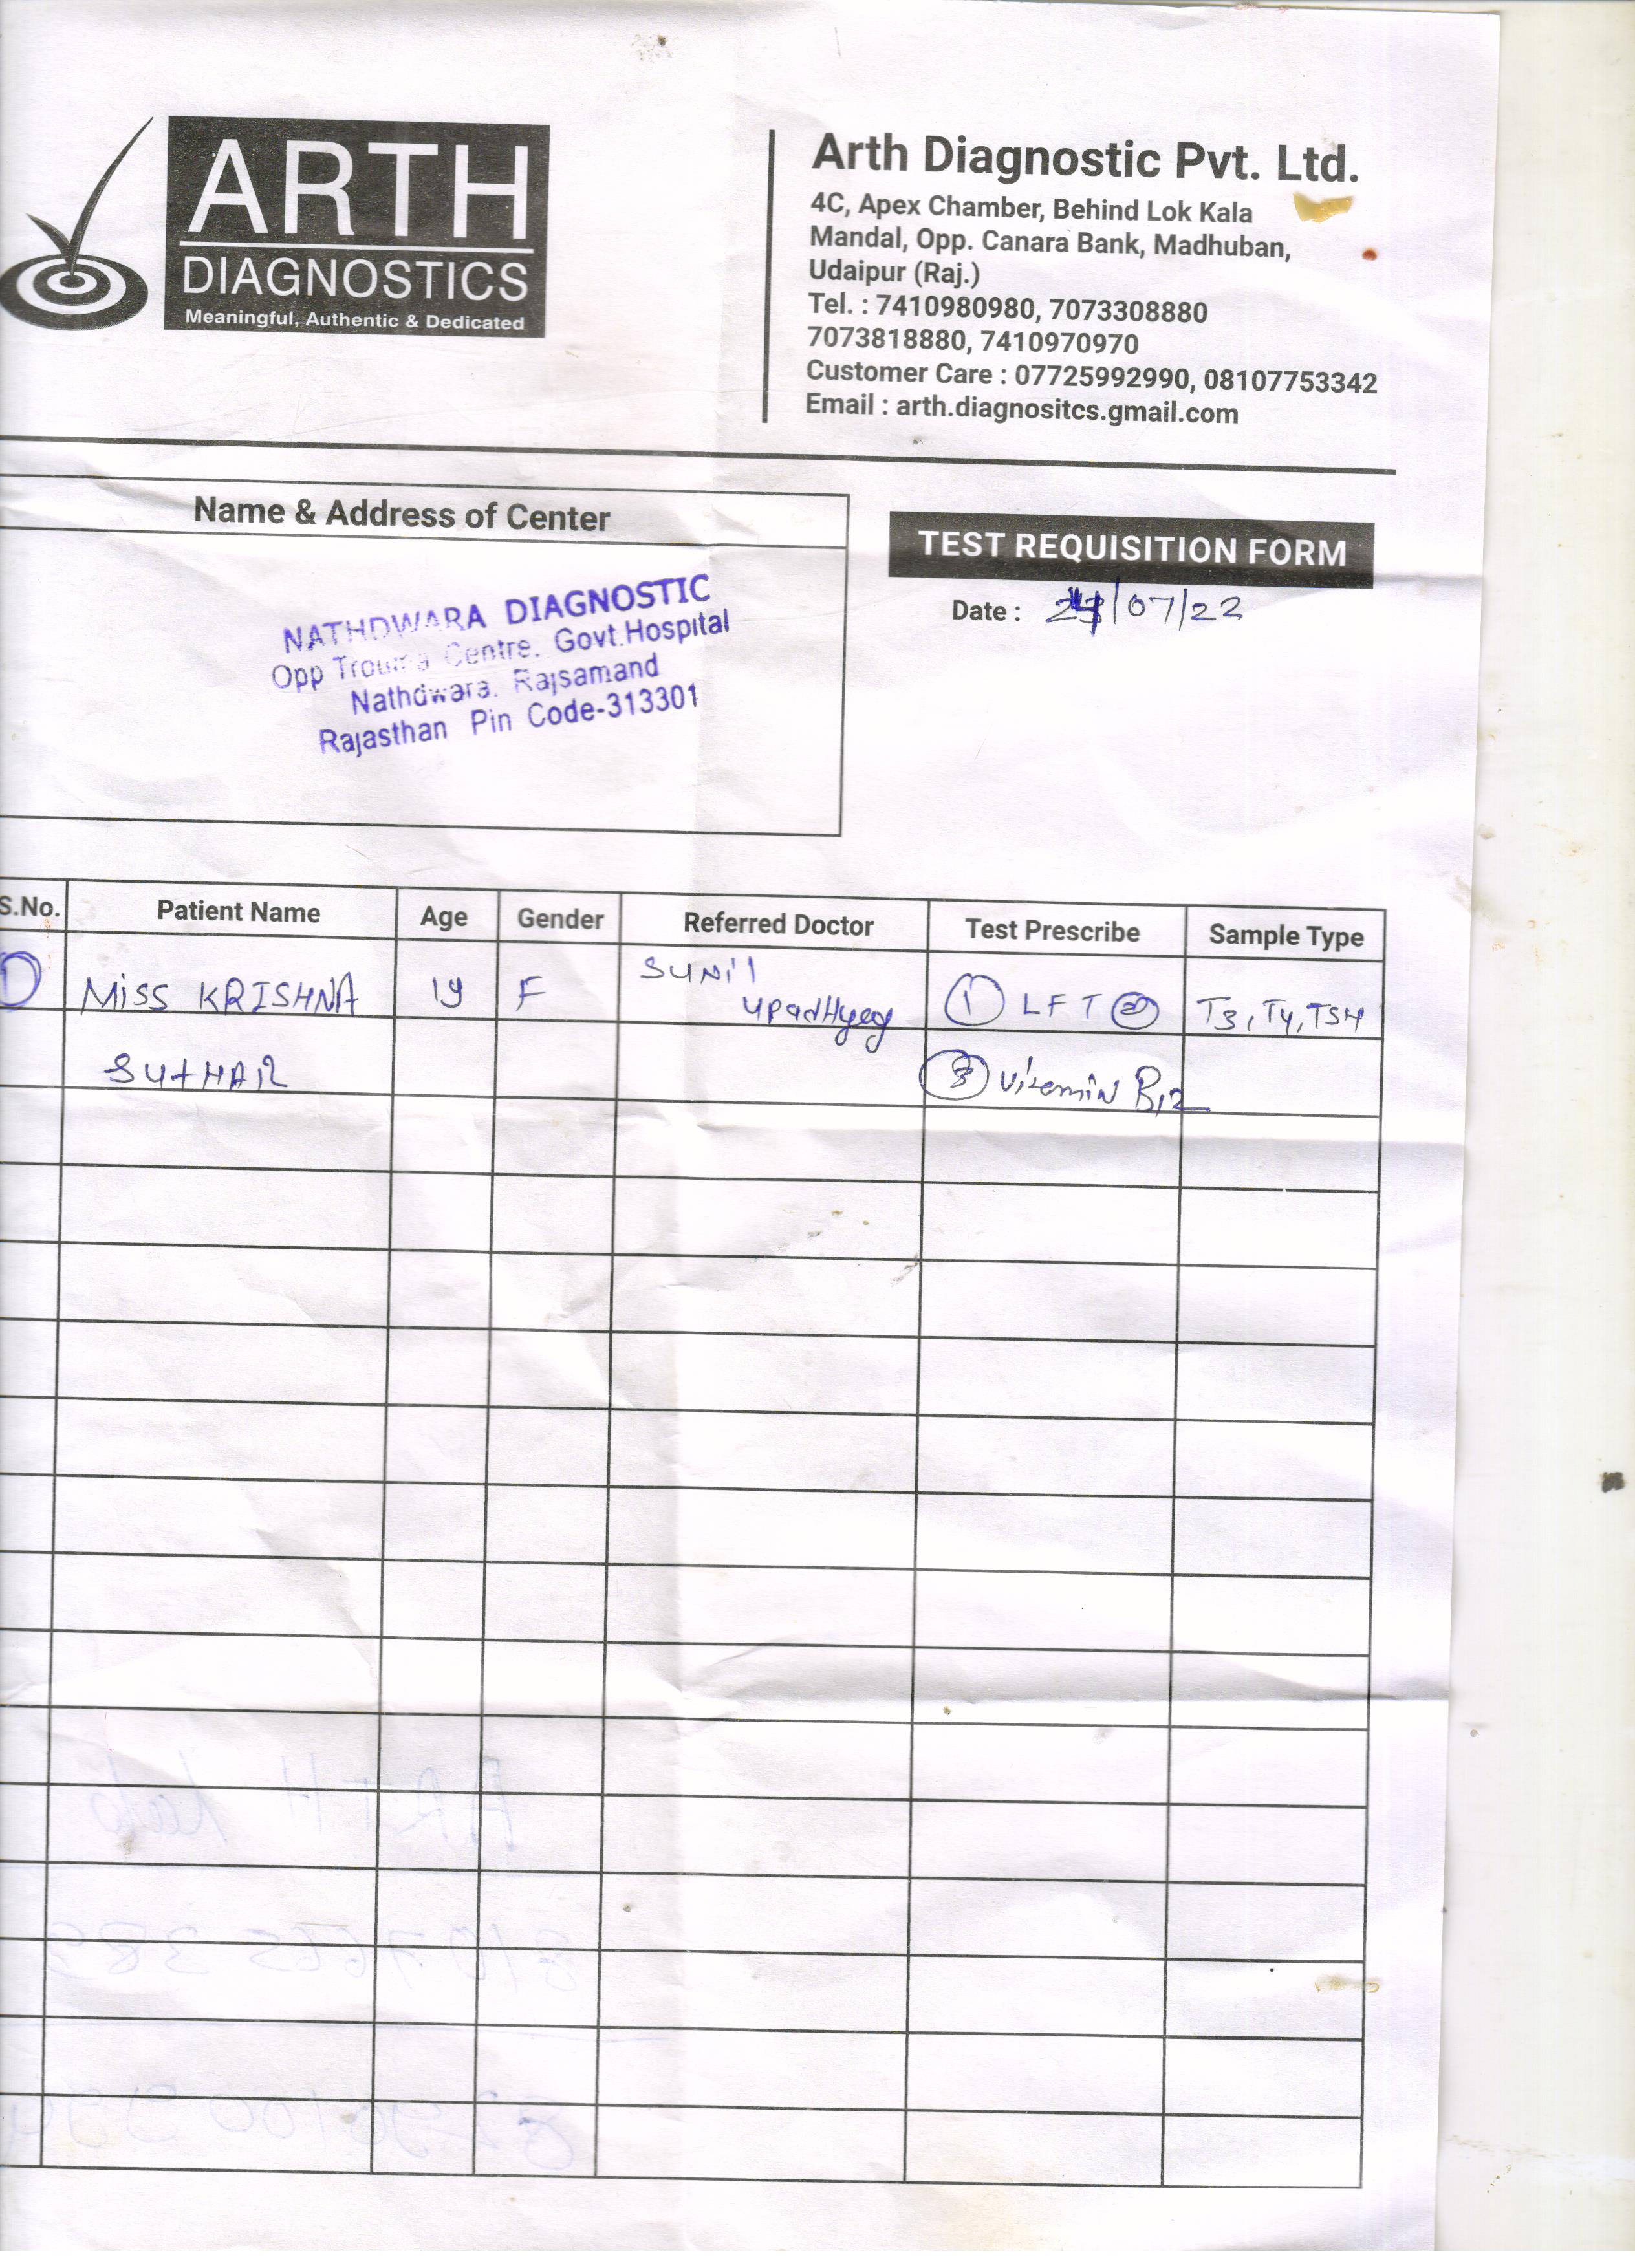 ARTH
DIAGNOSTICS
Meaningful, Authentic & Dedicated
Arth Diagnostic Pvt. Ltd.
4C, Apex Chamber, Behind Lok Kala
Mandal, Opp. Canara Bank, Madhuban,
Udaipur (Raj.)
Tel. : 7410980980, 7073308880
7073818880, 7410970970
Customer Care : 07725992990, 08107753342
Email : arth.diagnositcs.gmail.com
Name & Address of Center
NATHDWARA DIAGNOSTIC
Opp Trouma Centre. Govt.Hospital
Nathdwara. Rajsamand
Rajasthan Pin Code-313301
TEST REQUISITION FORM
Date : /07/22
S.No. Patient Name Age Gender Referred Doctor Test Prescribe Sample Type
1 MISS KRISHNA 19 F SUNil ① LFT ② T3, T4, TSH
SUTHAR upadhyay ③ Vitamin B12
ARTH Lab